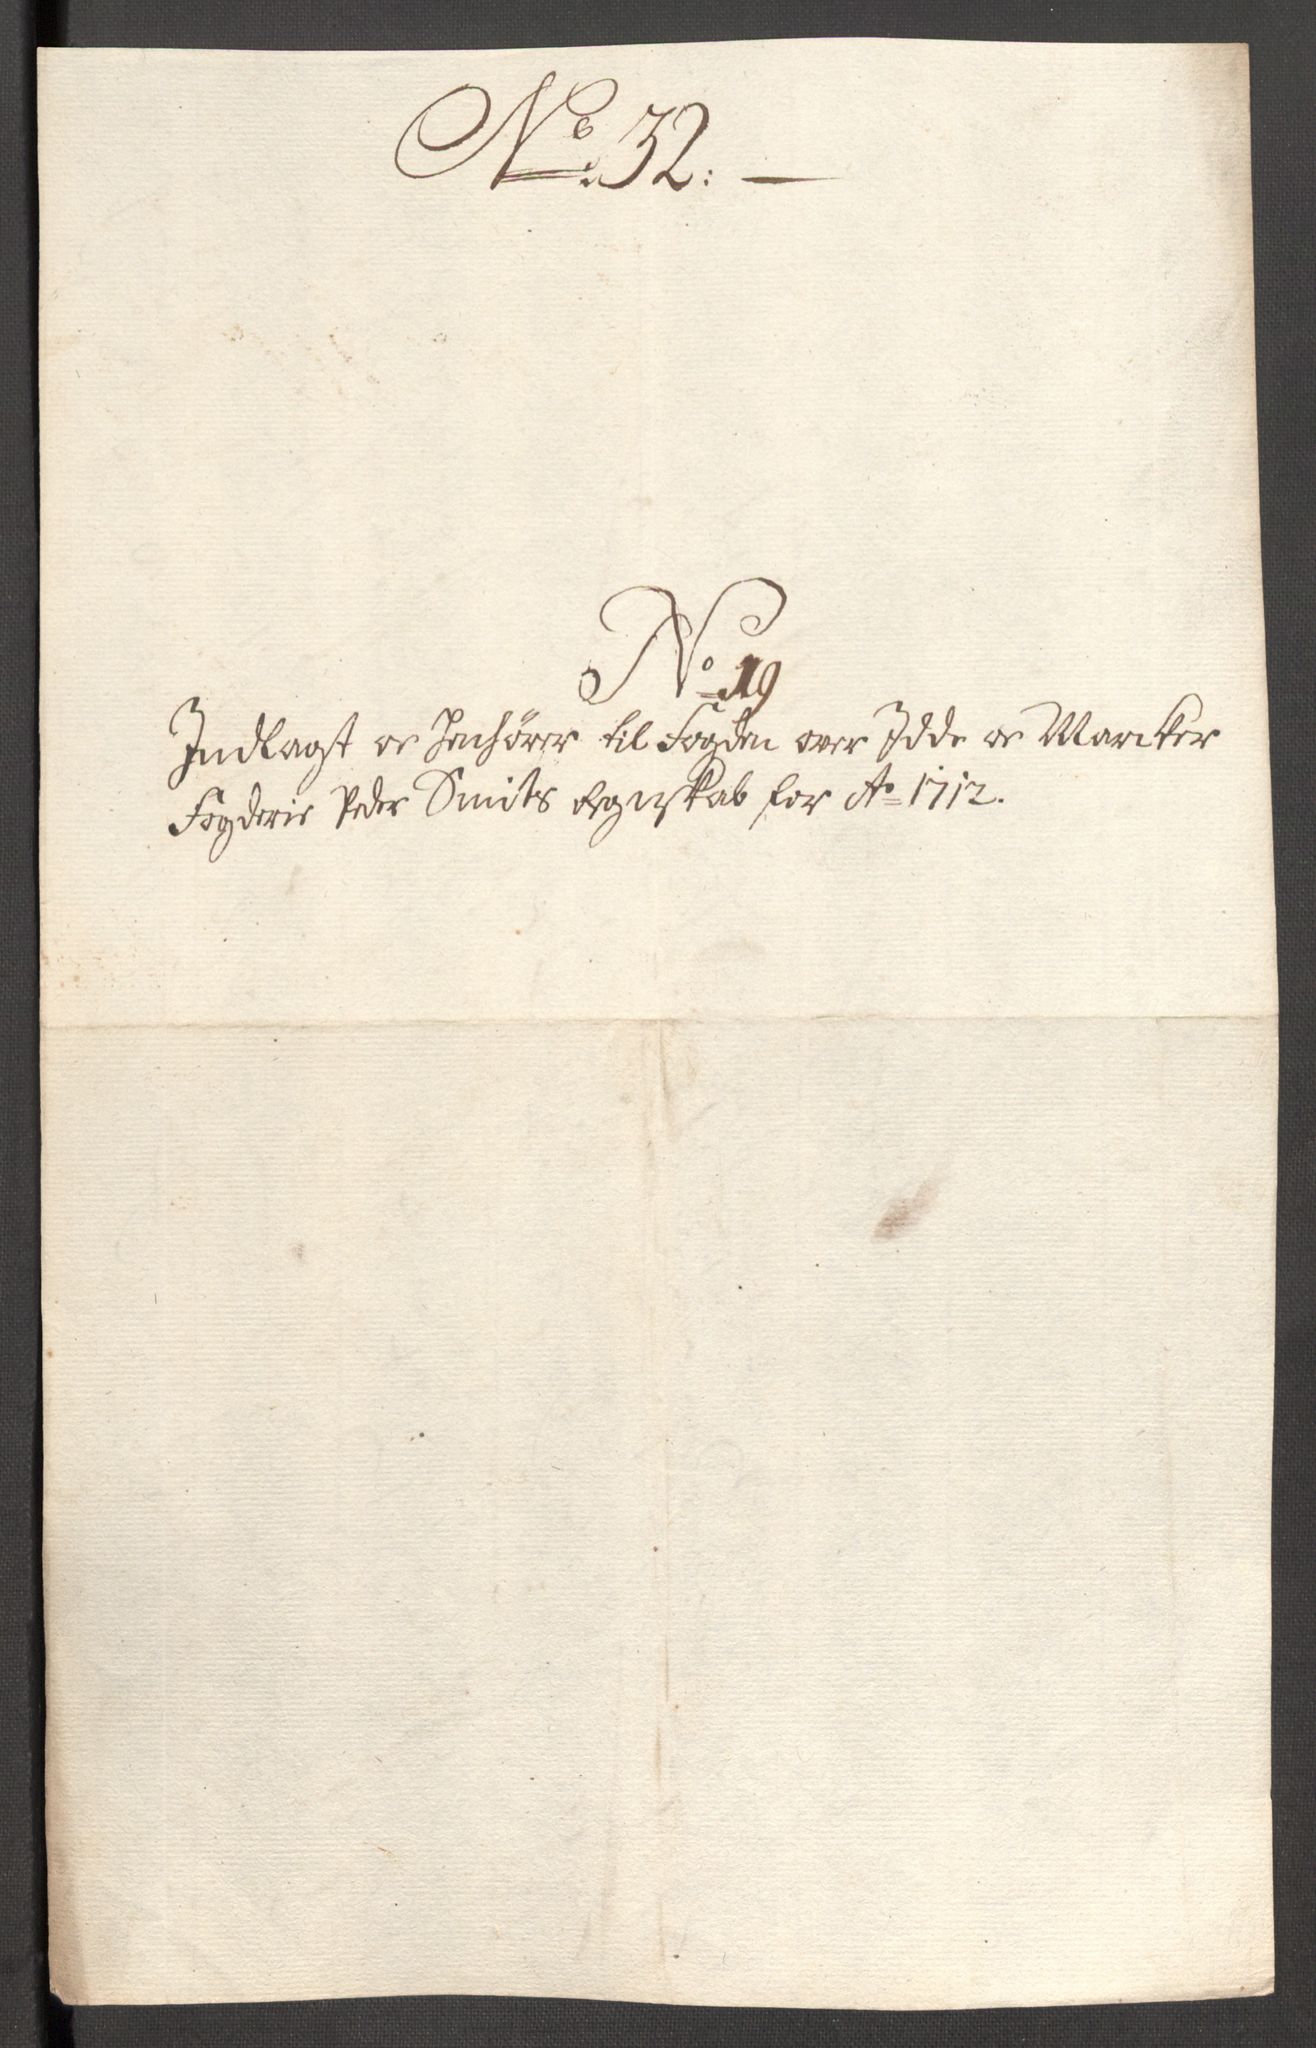 No. 32:
No. 19
Indlagst oc henhörer til Fogden over Idde oc Marcker
Fogderie Peder Smits Regnskab for Ao 1712.